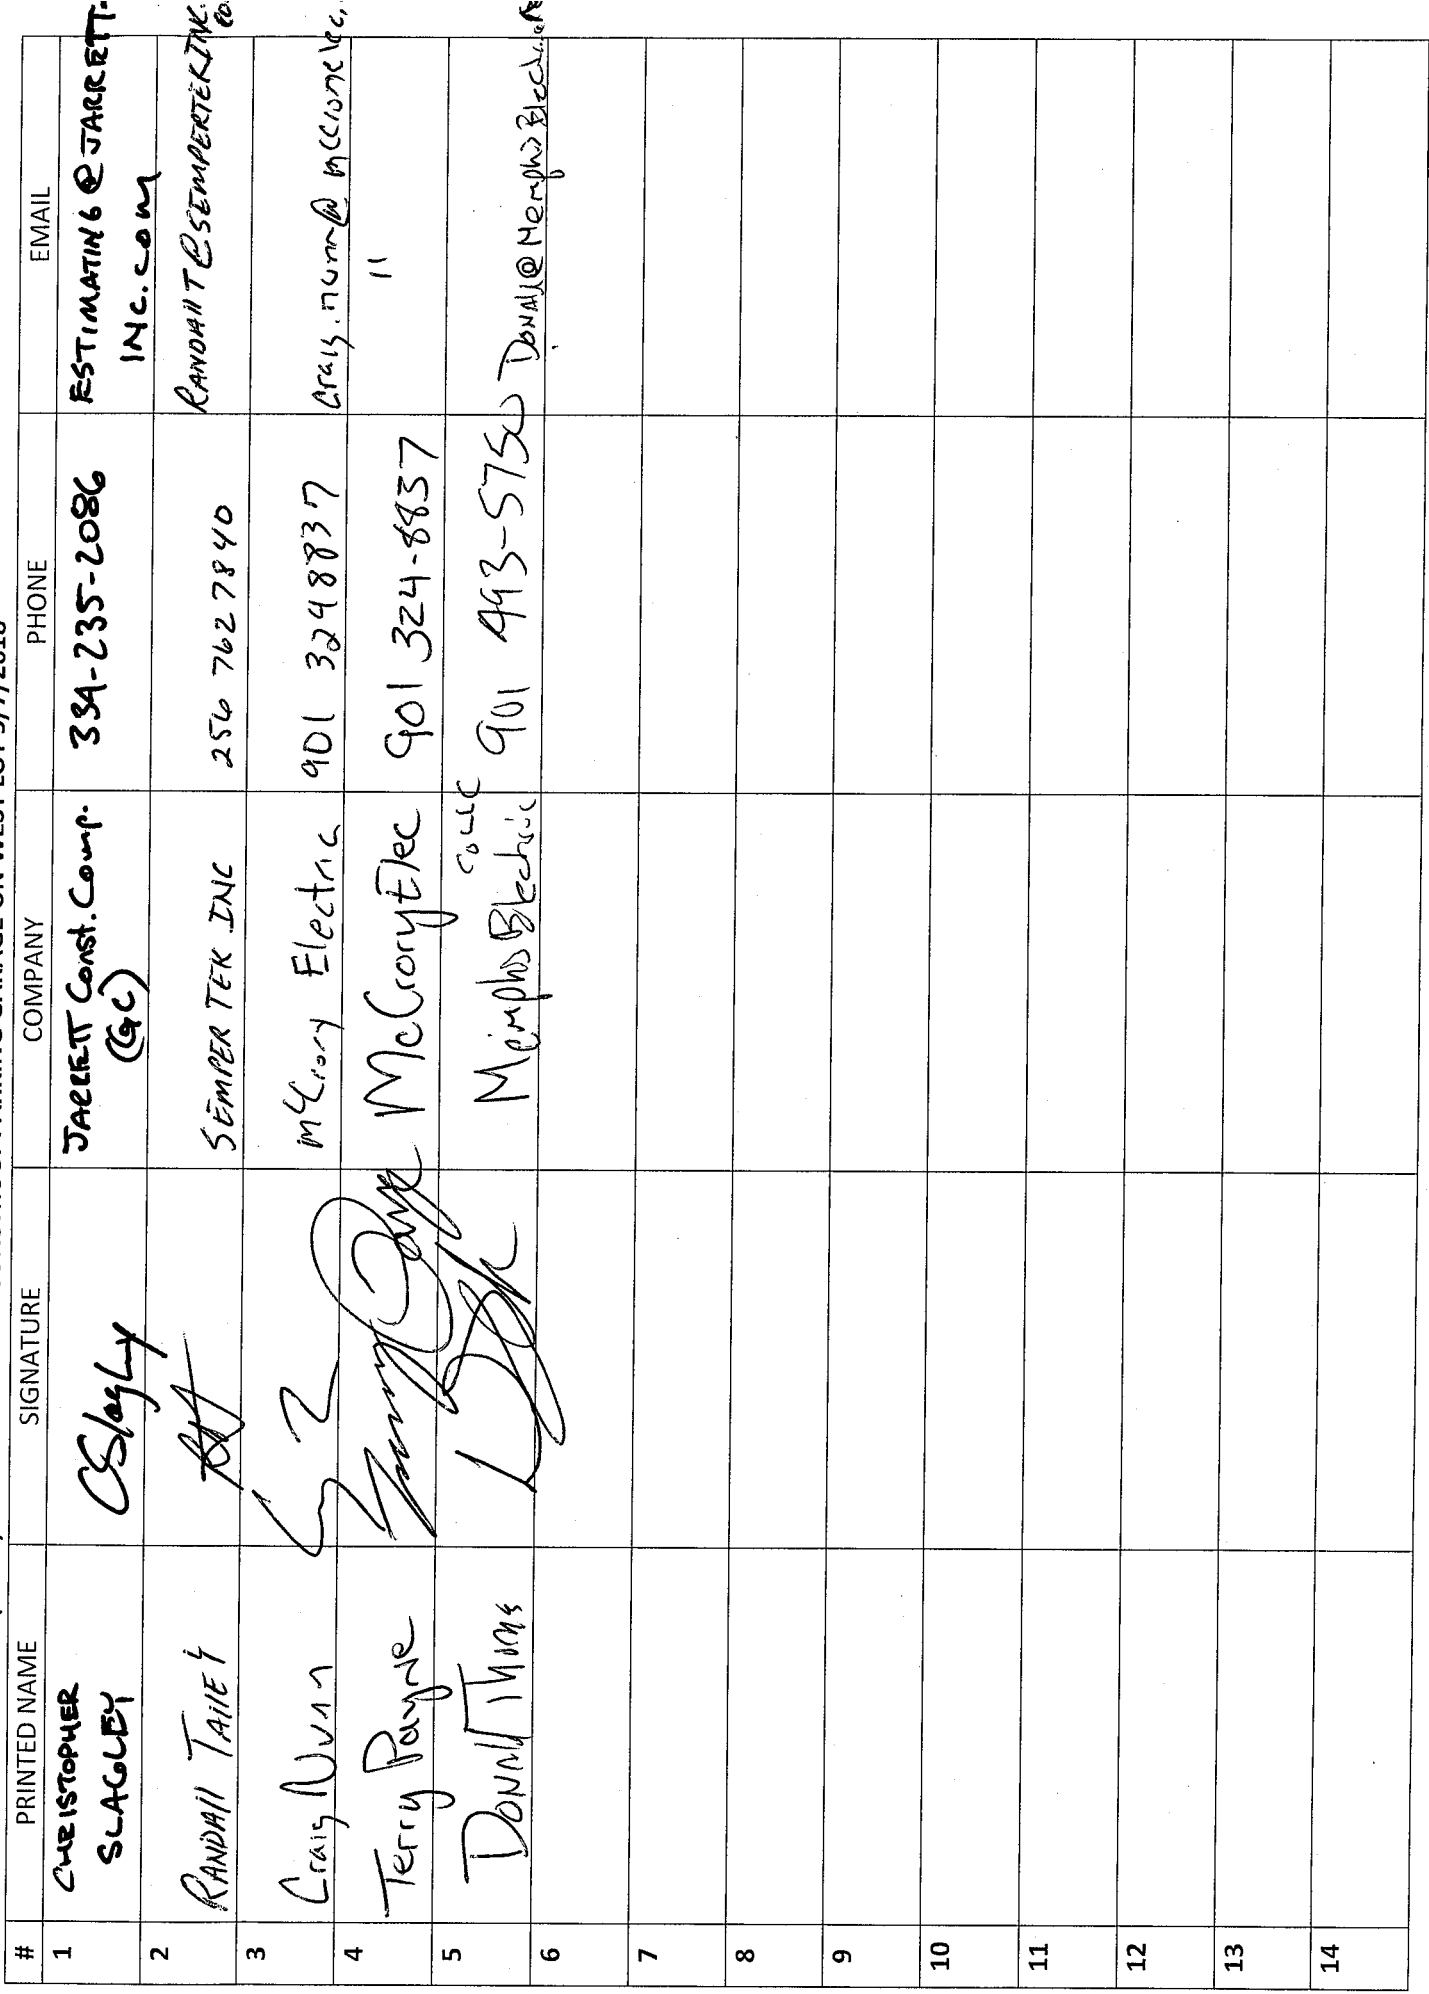 PARKING GARAGE ON WEST LOT 5/7/2018
# PRINTED NAME SIGNATURE COMPANY PHONE EMAIL
1 CHRISTOPHER SLAGLEY CSlagley JARRETT Const. Comp. (GC) 334-235-2086 ESTIMATING@JARRETT-INC.COM
2 RANDAll TAllEY 256 762 7840 SEMPER TEK INC RANDAllT@SEMPERTEKINC.CO
3 Craig Nunn McCrory Electric 901 324 8837 Craig.nunn@mccroryelec.
4 Terry Payne McCrory Elec 901 324-8837 "
5 Donald Thoms Memphis Electric 901 493-575 Donald@Memphis
6
7
8
9
10
11
12
13
14